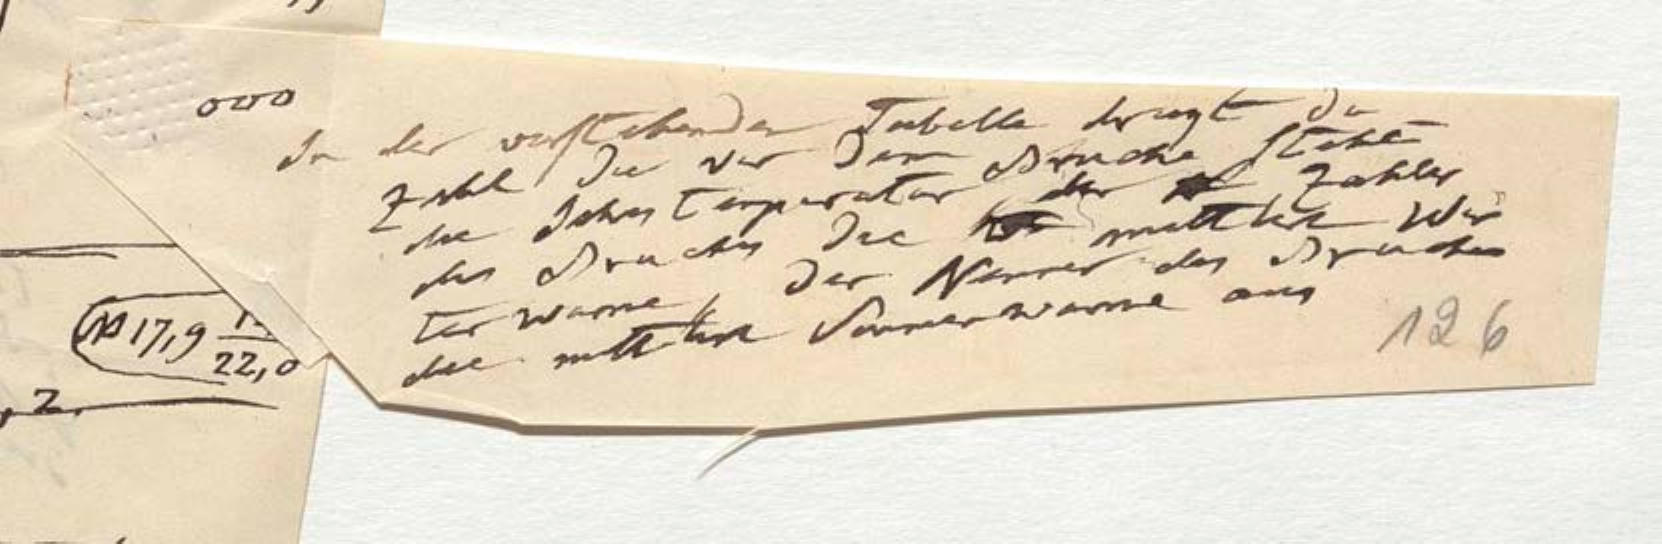 000
In der vorstehenden Tabelle drugt die
Zahl, die vor dem Bruche steht
die Jahrestemperatur der Zähler
des Bruches die mittlere Win
ter warme, der Nenner des Bruches
die mittlere Sommerwarme aus
126
17,9
22,0
2.